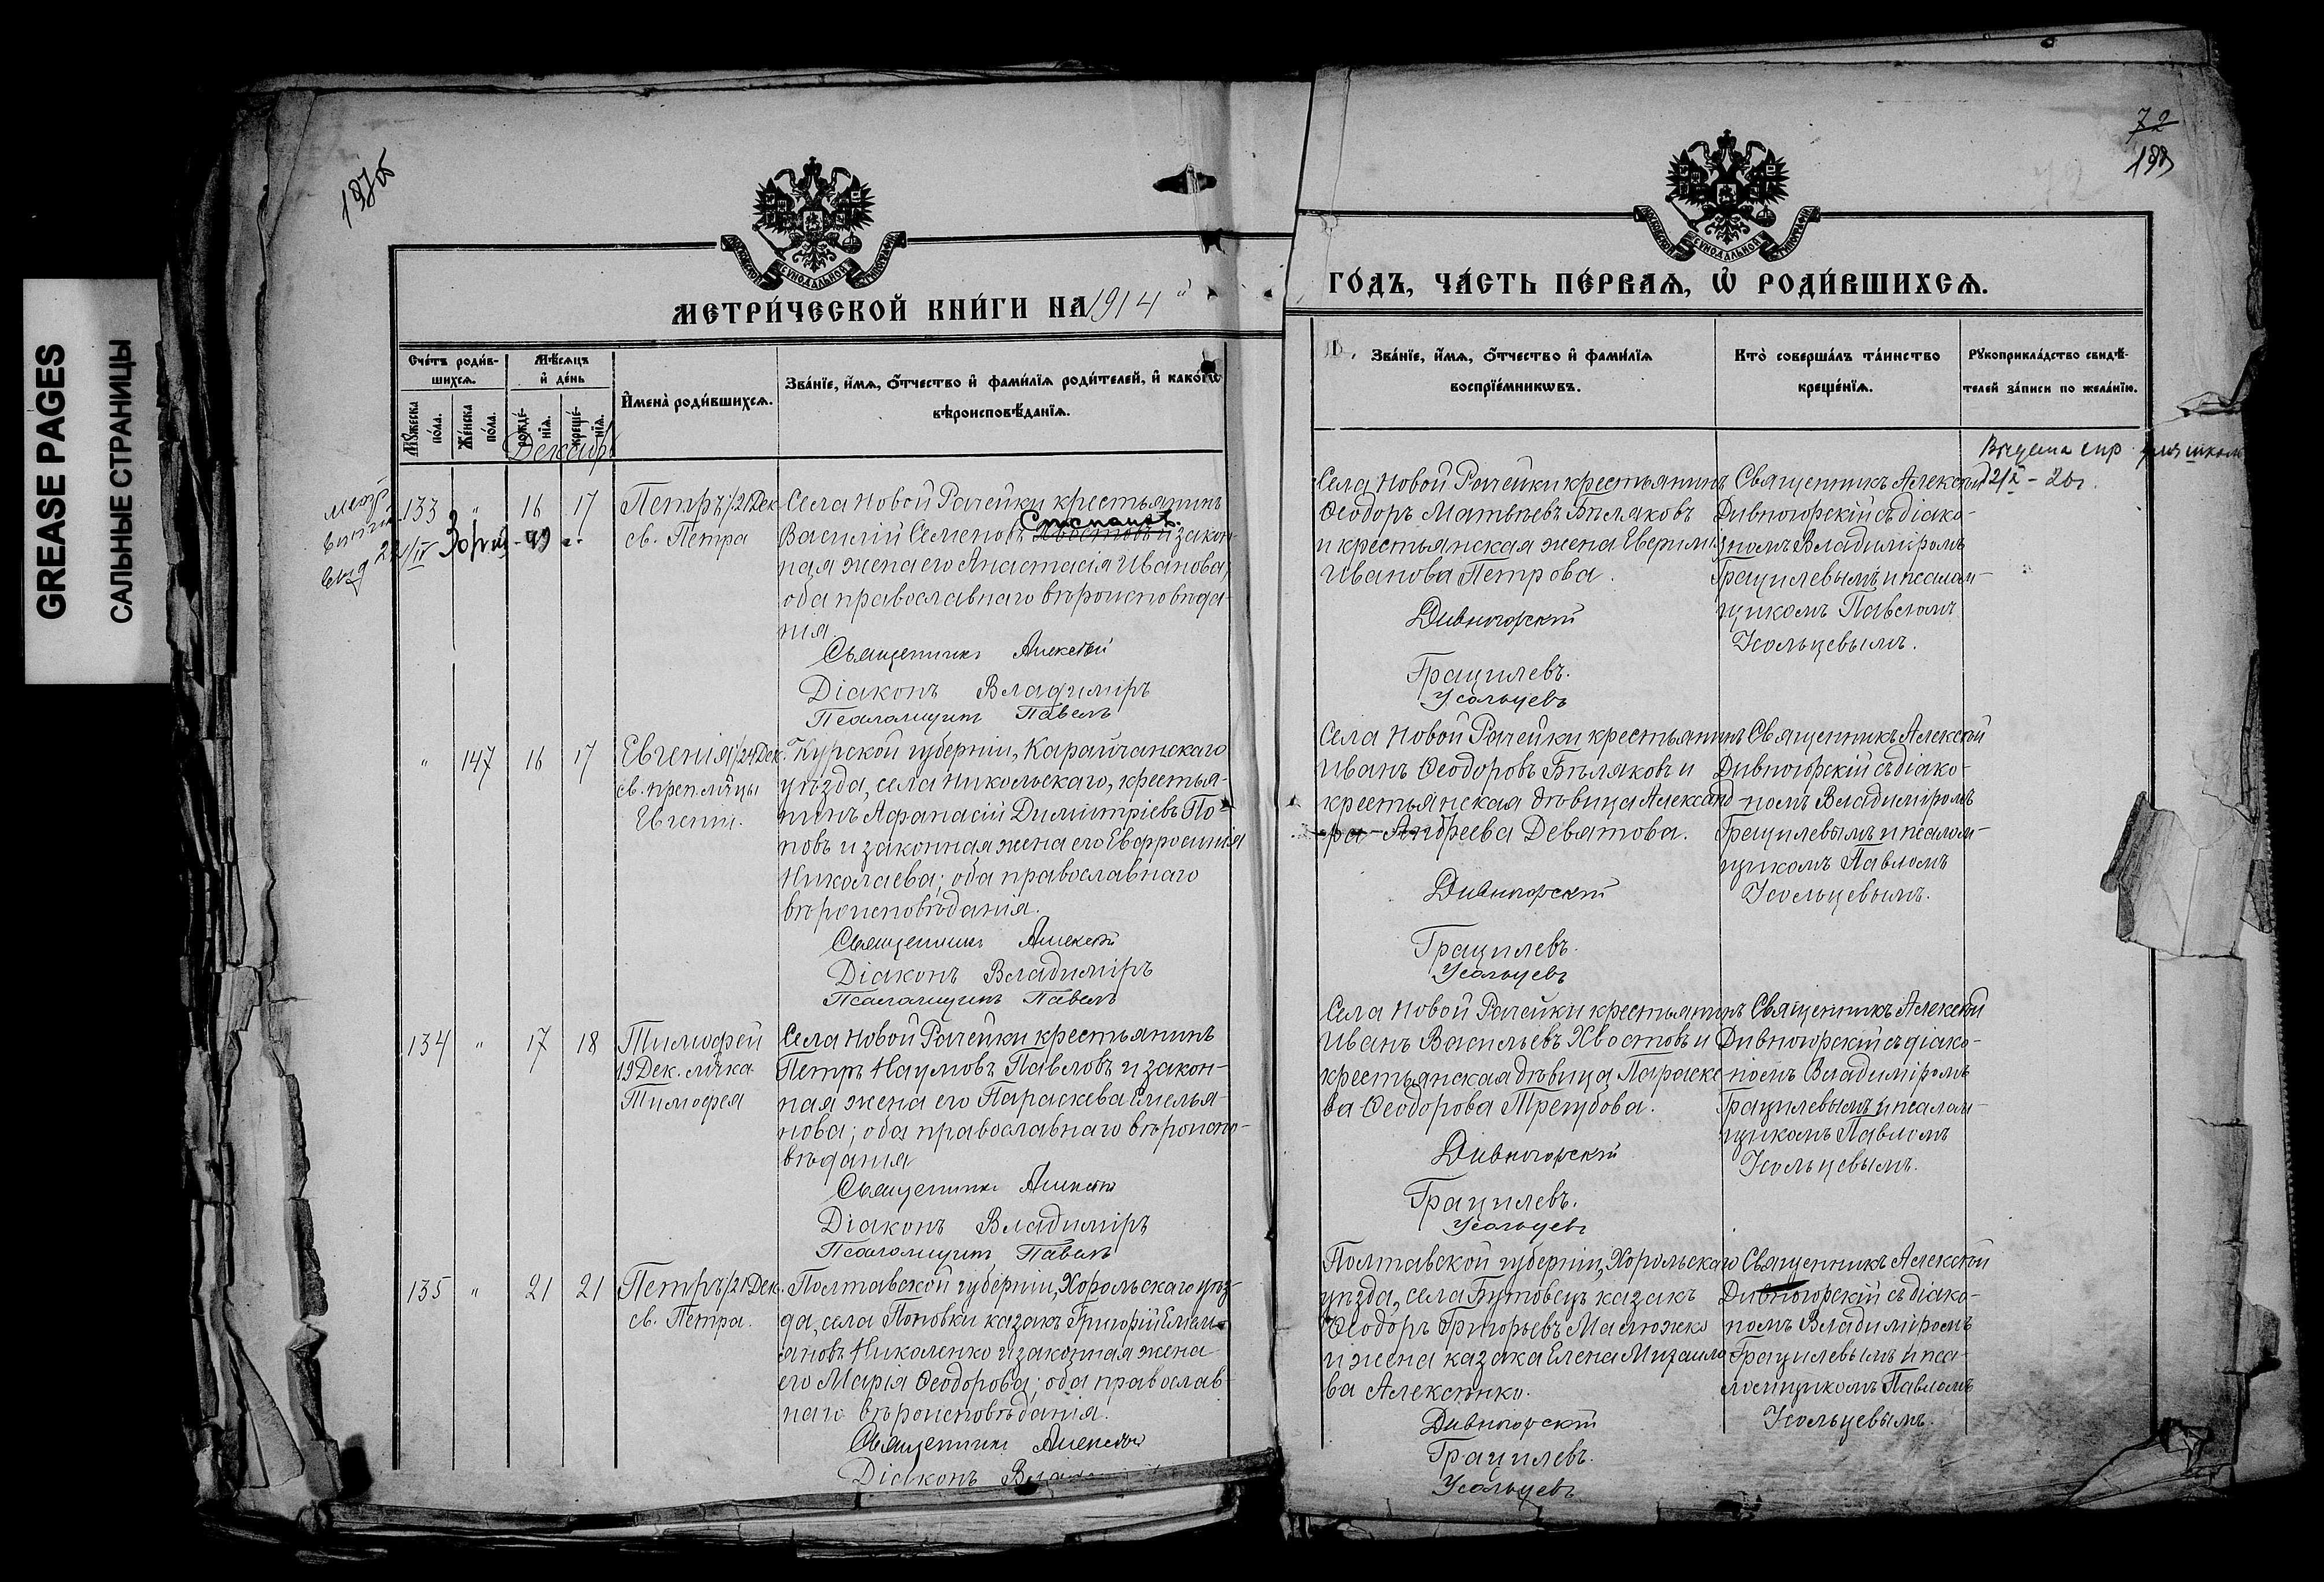 GREASE PAGES
САЛЬНЫЕ СТРАНИЦЫ
72
МЕТРИ́ЧЕСКОЙ КНИ́ГИ НА 1914
ГО́ДЪ, ЧА́СТЬ ПЕ́РВАѦ, Ѡ РОДИ́ВШИХСѦ.
Сче́тъ роди́в-
шихсѧ.
Мѣ́сѧцъ
и де́нь
Мꙋ́жеска по́ла.
Же́нска по́ла.
рожде́-
нїѧ.
креще́-
нїѧ.
И҆мена̀ роди́вшихсѧ.
Зва́нїе, и҆́мѧ, ѻ҆́тчество и҆ фами́лїѧ роди́телей, и҆ како́гѡ
вѣроисповѣ́данїѧ.
Зва́нїе, и҆́мѧ, ѻ҆́тчество и҆ фами́лїѧ
воспрїе́мникѡвъ.
Кто̀ соверша́лъ та́инство
креще́нїѧ.
Рꙋкоприкла́дство свидѣ́-
телей за́писи по жела́нїю.
Декабрь
133 " 16 17
Петръ/21 Дек.
св. Петра
Села Новой Рачейки крестьянинъ
Василий Семеновъ Хвостовъ и закон-
ная жена его Анастасія Иванова,
оба православнаго вѣроисповѣда
нія
Священникъ Алексѣй
Діаконъ Владиміръ
Псаломщикъ Павелъ
Села Новой Рачейки крестьянинъ
Ѳеодоръ Матвѣевъ Бѣляковъ
и крестьянская жена
Иванова Петрова.
Дивногорскій
Грацилевъ.
Усольцевъ
Священникъ Алексѣй
Дивногорскій съ діако-
номъ Владиміромъ
Грацилевымъ и псалом-
щикомъ Павломъ
Усольцевымъ.
" 147 16 17
Евгенія/24 Дек.
св. препмчцы
Евгеніи.
Курской губерніи,
уѣзда, села Никольскаго, крестья-
нинъ Афанасій Димитріевъ По-
повъ и законная жена его Евфросинія
Николаева; оба православнаго
вѣроисповѣданія.
Священникъ Алексѣй
Діаконъ Владиміръ
Псаломщикъ Павелъ
Села Новой Рачейки крестьянинъ
Иванъ Ѳеодоровъ Бѣляковъ и
крестьянская дѣвица Александ-
ра Андреева Девятова.
Дивногорскій
Грацилевъ.
Усольцевъ
Священникъ Алексѣй
Дивногорскій съ діако-
номъ Владиміромъ
Грацилевымъ и псалом-
щикомъ Павломъ
Усольцевымъ.
134 " 17 18
Тимофей
19 Дек. мчка
Тимофея
Села Новой Рачейки крестьянинъ
Петръ Наумовъ Павловъ и закон-
ная жена его Параскева Емелья-
нова; оба православнаго вѣроиспо-
вѣданія
Священникъ Алексѣй
Діаконъ Владиміръ
Псаломщикъ Павелъ
Села Новой Рачейки крестьянинъ
Иванъ Васильевъ Хвостовъ и
крестьянская дѣвица Параске
ва Ѳеодорова Трегубова.
Дивногорскій
Грацилевъ.
Усольцевъ
Священникъ Алексѣй
Дивногорскій съ діако-
номъ Владиміромъ
Грацилевымъ и псалом-
щикомъ Павломъ
Усольцевымъ.
135 " 21 21
Петръ/21 Дек.
св. Петра.
Полтавской губерніи, Хорольскаго уѣз-
да, села Поповки казакъ Григорій Емель-
яновъ Николенко и законная жена
его Марія Ѳеодорова; оба православ-
наго вѣроисповѣданія.
Священникъ Алексѣй
Діаконъ
Полтавской губерніи, Хорольскаго
уѣзда, села Бутовецъ казакъ
Ѳеодоръ Григорьевъ
и жена казака Елена Михаило-
ва Алексенко.
Дивногорскій
Грацилевъ.
Усольцевъ
Священникъ Алексѣй
Дивногорскій съ діако-
номъ Владиміромъ
Грацилевымъ и пса-
ломщикомъ Павломъ
Усольцевымъ.